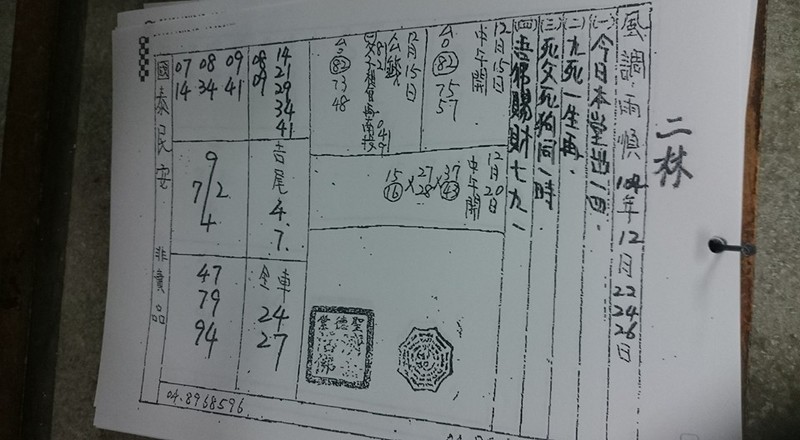 二林
風調雨順 104年12月22 24 26日
(一)今日本堂出一四.
(二)九死一生再.
(三)死父死狗同一時
(四)活佛賜財七九一
12月15日
中午開
台
82
75
57
12月15日
台
82
73
48
12月20日
中午開
37 × 27 × 15
43
28
16
14
21
29
34
41
08
09
09
41
08
34
07
14
吉尾4.7.
9
7/2
4
車
24
27
47
79
94
國泰民安 非賣品
聖德堂
濟公活佛
04.8968596